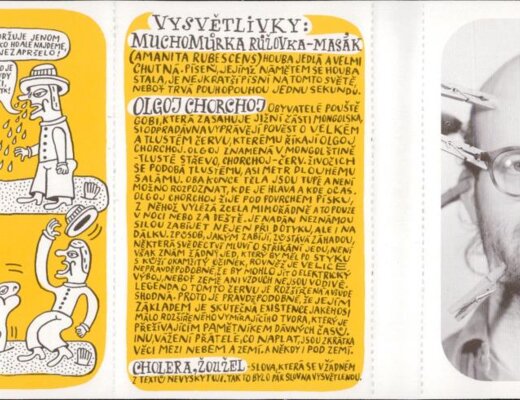 DRŽUJE JENOM
KO HO ALE NAJDEME,
NEZAPRŠELO!
VYSVĚTLIVKY:
MUCHOMŮRKA RŮŽOVKA-MASÁK
(AMANITA RUBESCENS) HOUBA JEDLÁ A VELMI
CHUTNÁ. PÍSEŇ, JEJÍMŽ NÁMĚTEM SE HOUBA
STALA, JE NEJKRATŠÍ PÍSNÍ NA TOMTO SVĚTĚ
NEBOŤ TRVÁ POUHOPOUHOU JEDNU SEKUNDU.
OLGOJ CHORCHOJ OBYVATELÉ POUŠTĚ
GOBI, KTERÁ ZASAHUJE JIŽNÍ ČÁSTI MONGOLSKA,
SI ODPRADÁVNA VYPRÁVĚJÍ POVĚST O VELKÉM
A TLUSTÉM ČERVU, KTERÉMU ŘÍKAJÍ OLGOJ
CHORCHOJ. OLGOJ ZNAMENÁ V MONGOLŠTINĚ
-TLUSTÉ STŘEVO, CHORCHOJ-ČERV. ŽIVOČICH
SE PODOBÁ TLUSTÉMU, ASI METR DLOUHÉMU
SALÁMU. OBA KONCE TĚLA JSOU TUPÉ A NENÍ
MOŽNO ROZPOZNAT, KDE JE HLAVA A KDE OCAS.
OLGOJ CHORCHOJ ŽIJE POD POVRCHEM PÍSKU,
Z NĚHOŽ VYLÉZÁ ZCELA MIMOŘÁDNĚ A TO POUZE
V NOCI NEBO ZA DEŠTĚ. JE NADÁN NEZNÁMOU
SILOU ZABÍJET NEJEN PŘI DOTYKU, ALE I NA
DÁLKU. ZPŮSOB, JAKÝM ZABÍJÍ, ZŮSTÁVÁ ZÁHADOU,
NĚKTERÁ SVĚDECTVÍ MLUVÍ O STŘÍKÁNÍ JEDU, NENÍ
VŠAK ZNÁM ŽÁDNÝ JED, KTERÝ BY MĚL PO STYKU
S KŮŽÍ OKAMŽITÝ ÚČINEK, ROVNĚŽ JE VELICE
NEPRAVDĚPODOBNÉ, ŽE BY MOHLO JÍT O ELEKTRICKÝ
VÝBOJ, NEBOŤ ZEMĚ ANI VZDUCH NEJSOU VODIVÉ.
LEGENDA O TOMTO ČERVU JE ROZŠÍŘENÁ A VŠUDE
SHODNÁ. PROTO JE PRAVDĚPODOBNÉ, ŽE JEJÍM
ZÁKLADEM JE SKUTEČNÁ EXISTENCE JAKÉHOSI
MÁLO ROZŠÍŘENÉHO VYMÍRAJÍCÍHO TVORA, KTERÝ JE
PŘEŽÍVAJÍCÍM PAMĚTNÍKEM DÁVNÝCH ČASŮ.
INU, VÁŽENÍ PŘÁTELÉ, CO NAPLAT, JSOU ZKRÁTKA
VĚCI MEZI NEBEM A ZEMÍ. A NĚKDY I POD ZEMÍ.
CHOLERA, ŽOUŽEL - SLOVA, KTERÁ SE V ŽÁDNÉM
Z TEXTŮ NEVYSKYTUJÍ, TAK TO BYLO PÁR SLOV NA VYSVĚTLENOU.